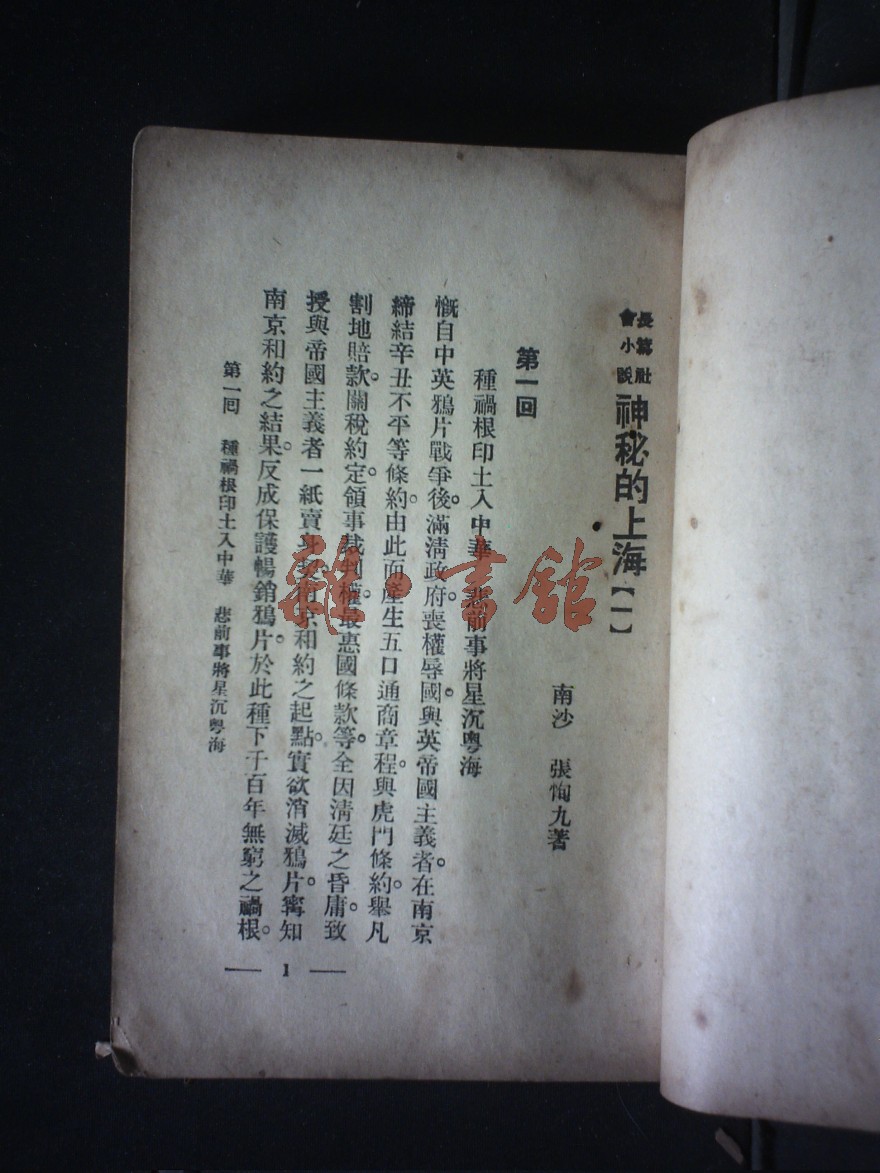 長篇社
會小說
神秘的上海【一】
南沙 張恂九著
第一回
種禍根印土入中華 悲前事將星沉粵海
慨自中英鴉片戰爭後。滿清政府喪權辱國。與英帝國主義者。在南京
締結辛丑不平等條約。由此而產生五口通商章程。與虎門條約。舉凡
割地賠款。關稅約定。領事裁判權。最惠國條款等。全因清廷之昏庸。致
授與帝國主義者一紙賣身契。南京和約之起點。實欲消滅鴉片。寧知
南京和約之結果。反成保護暢銷鴉片。於此種下千百年無窮之禍根。
第一回 種禍根印土入中華 悲前事將星沉粵海
1
雜·書館